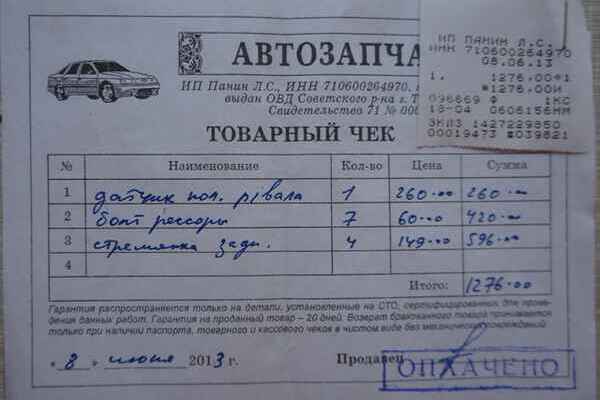 АВТОЗАПЧА
ИП Панин Л.С., ИНН 710600264970.
выдан ОВД Советского р-на г. Т
Свидетельство 71 № 000
ТОВАРНЫЙ ЧЕК
ИП ПАНИН Л.С.
ИНН 710600264970
08.06.13
1. 1276.00*1
*1276.00И
096669 Ф 1КС
18-04 0606156НМ
ЭКЛЗ 1427229850
00019473 #039821
№ Наименование Кол-во Цена Сумма
1 датчик пол. р/вала 1 260-00 260-00
2 болт рессоры 7 60-00 420-00
3 стремянка задн. 4 149-00 596-00
4
Итого: 1276-00
Гарантия распространяется только на детали, установленные на СТО, сертифицированных для прове-
дения данных работ. Гарантия на проданный товар – 20 дней. Возврат бракованного товара принимается
только при наличии паспорта, товарного и кассового чеков в чистом виде без механических повреждений
« 8 » июня 2013 г. Продавец
ОПЛАЧЕНО